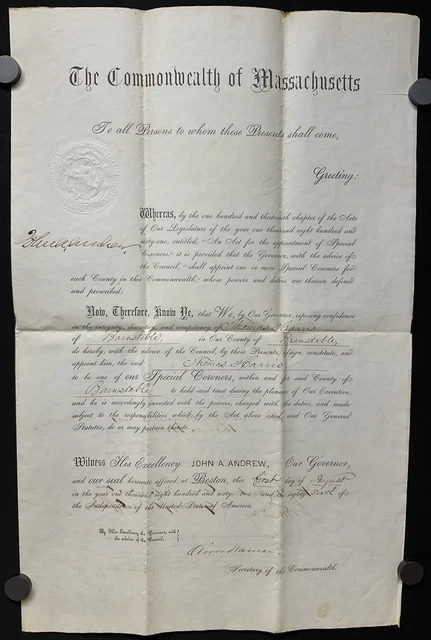 The Commonwealth of Massachusetts
To all Persons to whom these Presents shall come,
Greeting:
Whereas, by the one hundred and thirteenth chapter of the Acts
of Our Legislature of the year one thousand eight hundred and
sixty-one, entitled, "An Act for the appointment of Special
Coroners," it is provided that the Governor, with the advice of
the Council, "shall appoint one or more Special Coroners for
each County in this Commonwealth," whose powers and duties are therein defined
and prescribed:
John A. Andrew
Now, Therefore, Know Ye, that We, by Our Governor, reposing confidence
in the integrity, and competency of Thomas Harris
of Barnstable, in Our County of Barnstable,
do hereby, with the advice of the Council, by these Presents, assign, constitute, and
appoint him, the said Thomas Harris
to be one of our Special Coroners, within and for said County of
Barnstable, to hold said trust during the pleasure of Our Executive,
and he is accordingly invested with the powers, charged with the duties, and made
subject to the responsibilities which by the Act above cited, and Our General
Statutes, do or may pertain thereto.
Witness His Excellency JOHN A. ANDREW, Our Governor,
and our seal hereunto affixed, at Boston, this first day of August
in the year one thousand eight hundred and sixty-one and the eighty-sixth of
the Independence of the United States of America.
By His Excellency the Governor, with
the advice of the Council.
Oliver Warner
Secretary of the Commonwealth.